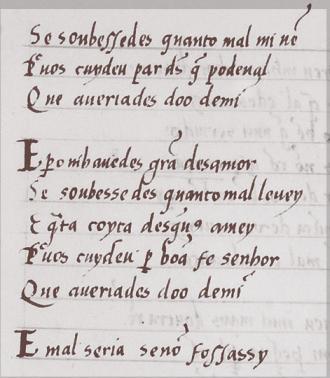 Se soubessedes quanto mal mi nẽ
P̃ uos cuydeu par ds̃ q̃ podenal
Que aueriades doo demi
E p̃o mhauedes grã desamor
Se soubessedes quanto mal leuey
E q̃ta coyta desq̃uꝯ amey
P̃ uos cuydeu ꝑ boã fe senhor
Que aueriades doo demi
E mal seria senõ fossassy